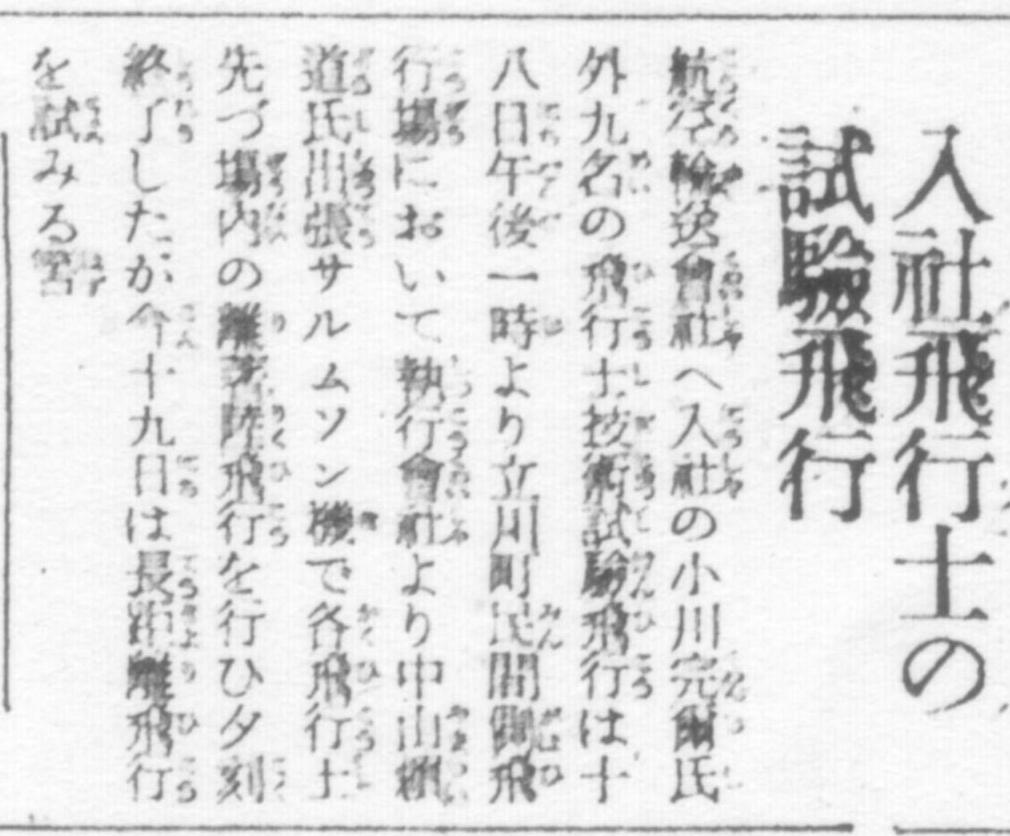 入社飛行士の
試驗飛行
航空輸送會社へ入社の小川完爾氏
外九名の飛行士技術試驗飛行は十
八日午後一時より立川町民間側飛
行場において執行會社より中山頼
道氏出張サルムソン機で各飛行士
先づ場内の離著陸飛行を行ひ夕刻
終了したが今十九日は長距離飛行
を試みる筈